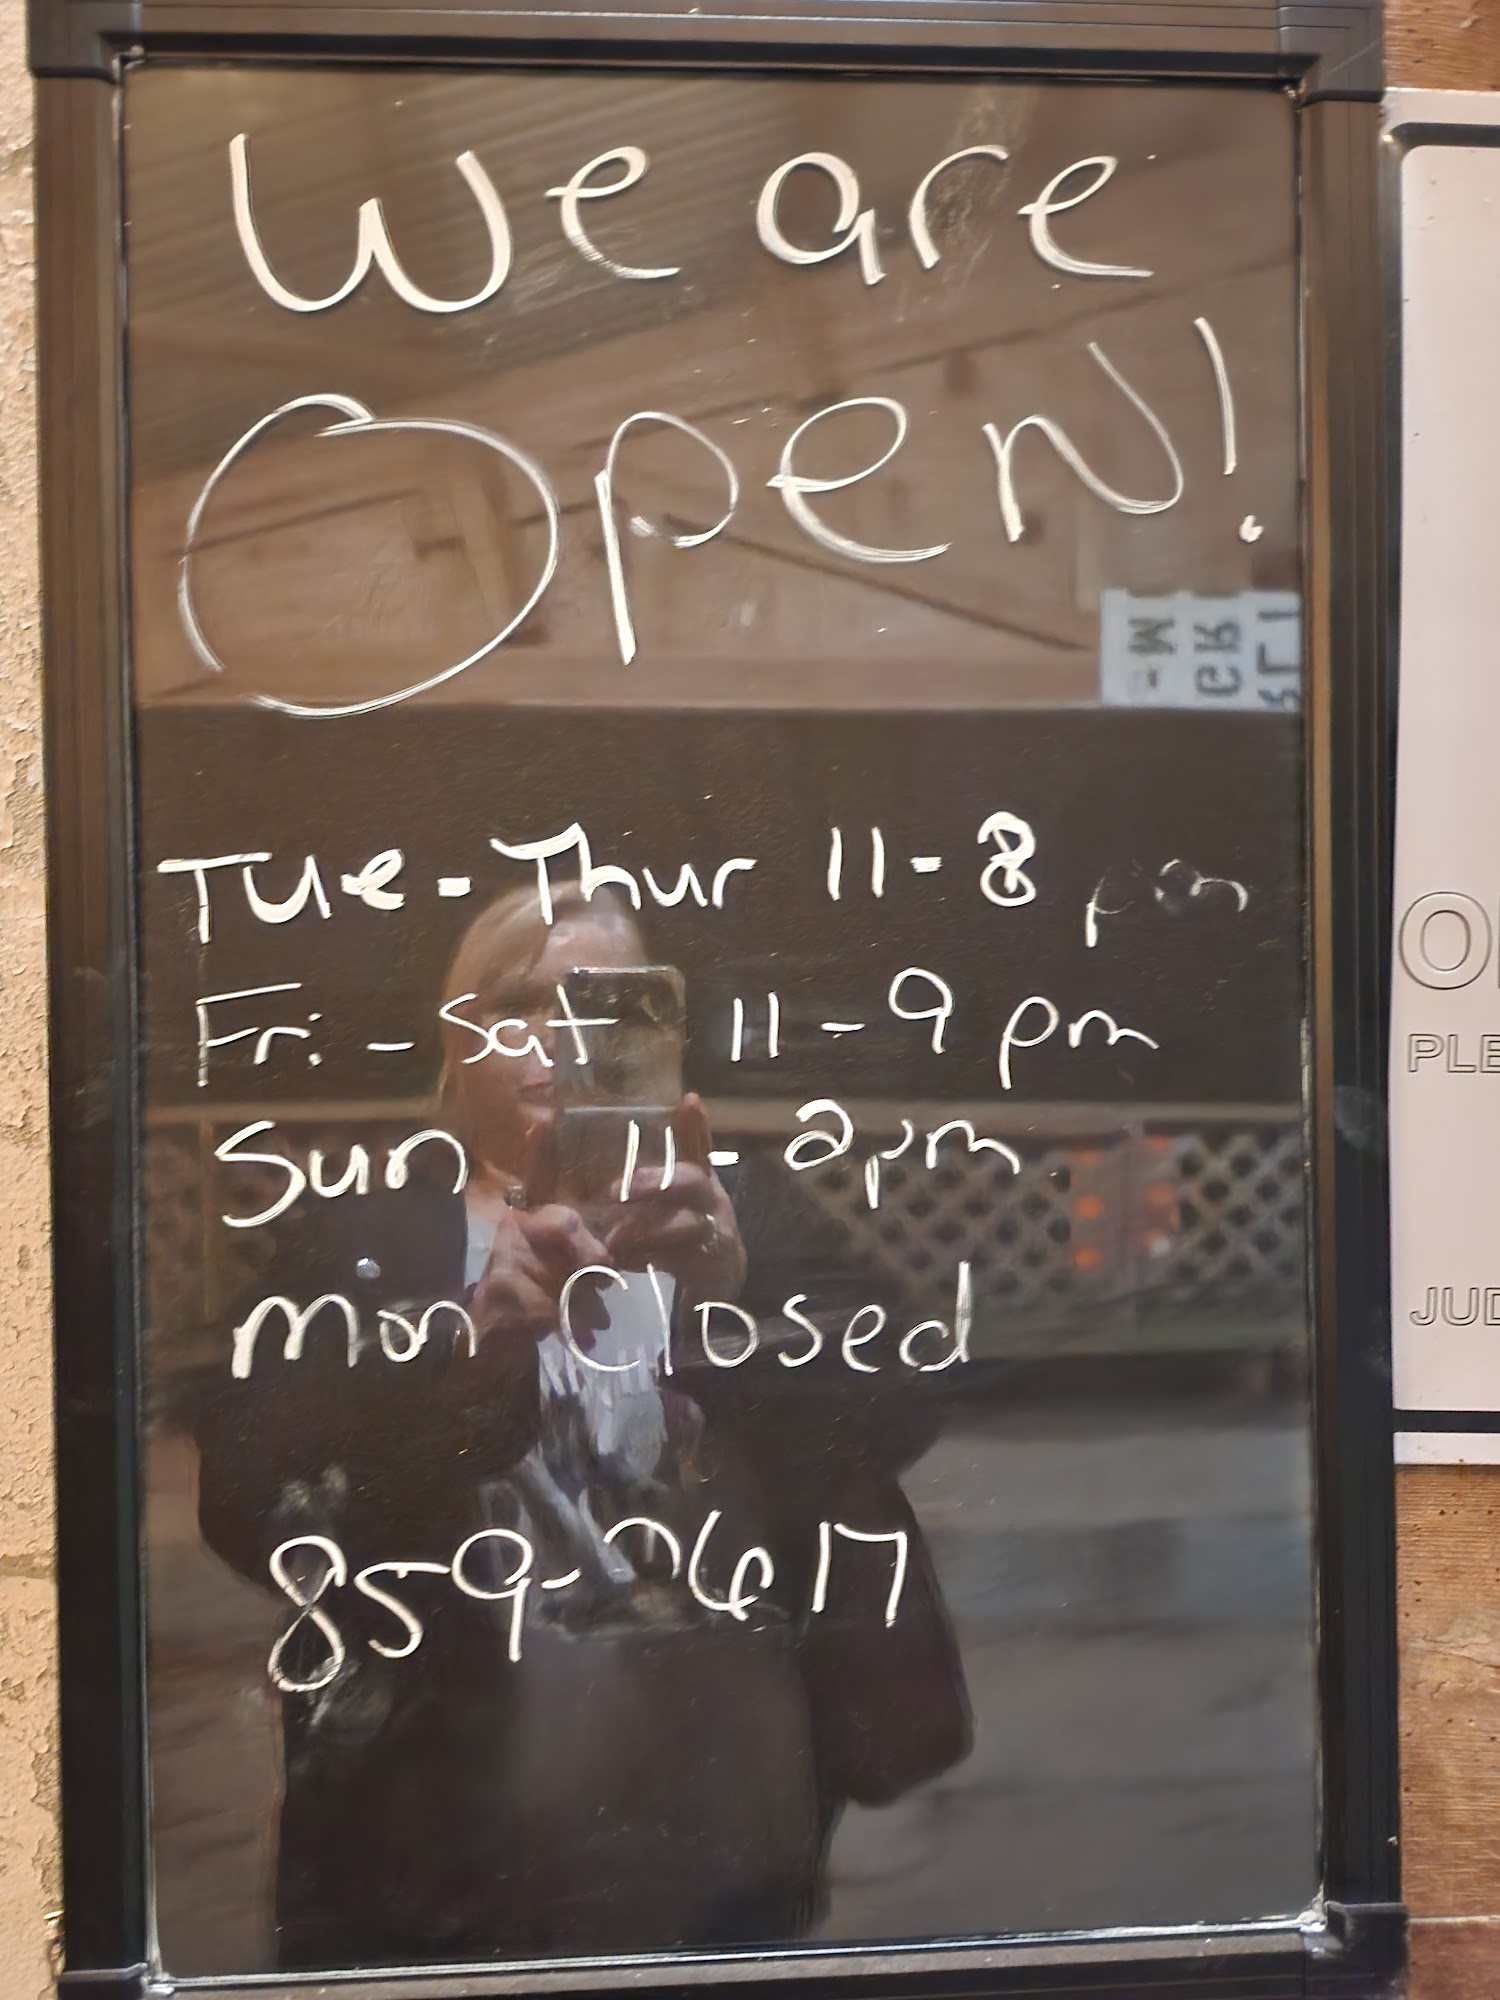 We are
Open!
Tue - Thur 11 - 8 pm
Fri - Sat 11 - 9 pm
Sun 11 - 2pm
mon Closed
859-7617
PLE
JUD